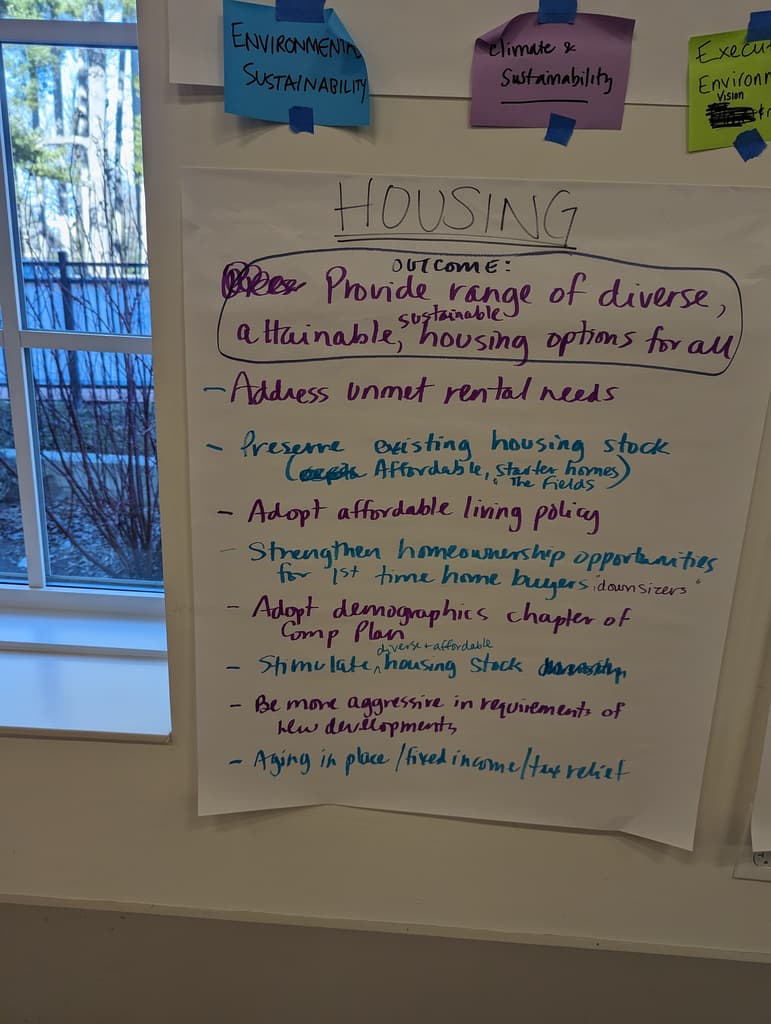 ENVIRONMENTAL
SUSTAINABILITY
Climate &
Sustainability
Execu
Environm
Vision
HOUSING
OUTCOME:
Provide range of diverse,
sustainable
attainable, housing options for all
- Address unmet rental needs
- Preserve existing housing stock
(Affordable, starter homes)
"The Fields
- Adopt affordable living policy
- Strengthen homeownership opportunities
for 1st time home buyers "downsizers"
- Adopt demographics chapter of
Comp Plan
diverse + affordable
- Stimulate ^ housing stock
- Be more aggressive in requirements of
new developments
- Aging in place /fixed income/tax relief